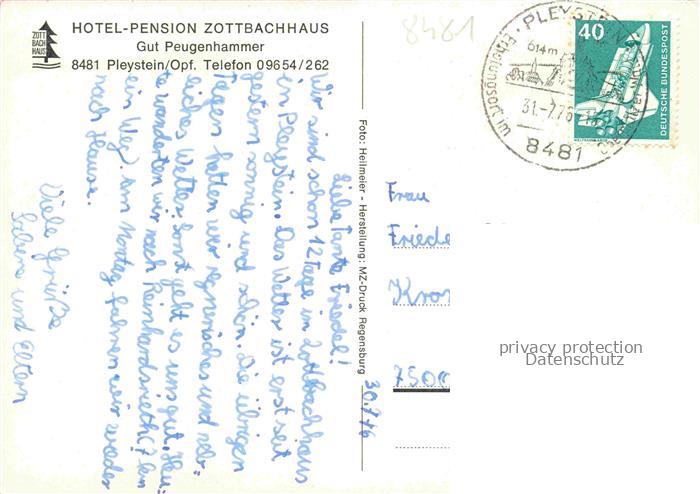 ZOTT
BACH
HAUS
HOTEL-PENSION ZOTTBACHHAUS
Gut Peugenhammer
8481 Pleystein/Opf. Telefon 09654/262
8481
PLEYSTEIN
614m
Erholungsort im
31.-7.76
8481
40
DEUTSCHE BUNDESPOST
30.7.76
Liebe Tante Friedel!
Wir sind schon 12 Tage in Zottbachhaus
in Pleystein. Das Wetter ist erst seit
gestern sonnig und schön. Die übrigen
Tagen hatten wir regnerisches und neb-
liches Wetter. Sonst geht es uns gut. Heu-
te wanderten wir nach Reinhardsrieth (7 km
ein Weg). Am Montag fahren wir wieder
nach Hause.
Viele Grüße
und Eltern
Foto: Heilmeier - Herstellung: MZ-Druck Regensburg
Frau
Friede
Kro
7500
privacy protection
Datenschutz